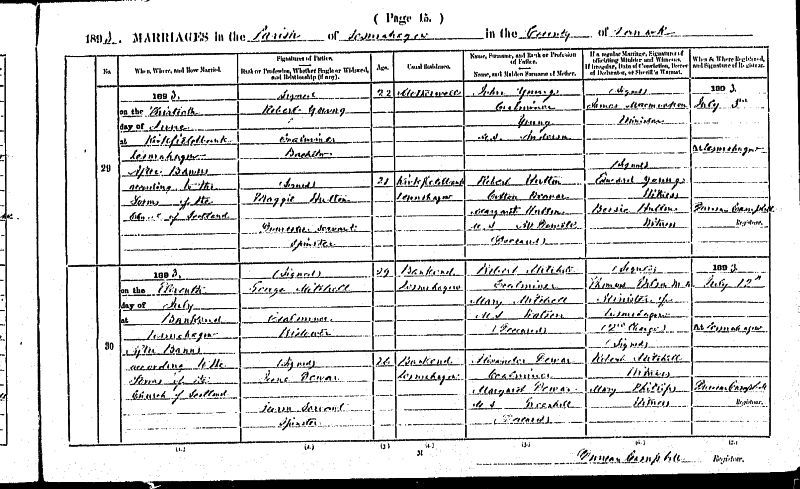 ( Page 15. )
1893. MARRIAGES in the Parish of Lesmahagow in the County of Lanark
No.
When, Where, and How Married.
Signatures of Parties.
Rank or Profession, Whether Single or Widowed, and Relationship (if any).
Age.
Usual Residence.
Name, Surname, and Rank or Profession of Father.
Name, and Maiden Surname of Mother.
If a regular Marriage, Signatures of officiating Minister and Witnesses.
If irregular, Date of Conviction, Decree of Declarator, or Sheriff's Warrant.
When & Where Registered, and Signature of Registrar.
29
1893.
on the Thirtieth
day of June
at Kirkfieldbank
Lesmahagow
After Banns
according to the
Forms of the
Church of Scotland
(Signed)
Robert Young
Coalminer
Bachelor
(Signed)
Maggie Hutton
Domestic Servant
Spinster
22
21
Motherwell
Kirkfieldbank
Lesmahagow
John Young
Coalminer
Young
M.S. Anderson
Robert Hutton
Cotton Weaver
Margaret Hutton
M.S.
(Deceased)
(Signed)
James
Minister
(Signed)
Edward Young
Witness
Bessie Hutton
Witness
1893
July 3rd
At Lesmahagow
Duncan Campbell
Registrar.
30
1893.
on the Eleventh
day of July
at Bankend
Lesmahagow
After Banns
according to the
Forms of the
Church of Scotland
(Signed)
George Mitchell
Coalminer
Widower
(Signed)
Jane Dewar
Farm Servant
Spinster
29
26
Bankend
Lesmahagow
Bankend
Lesmahagow
Robert Mitchell
Coalminer
Mary Mitchell
M.S. Watson
(Deceased)
Alexander Dewar
Coalminer
Margaret Dewar
M.S. Greenhill
(Deceased)
(Signed)
Thomas M.A.
Minister of
Lesmahagow
(2nd Charge)
(Signed)
Robert Mitchell
Witness
Mary Phillips
Witness
1893
July 12th
At Lesmahagow
Duncan Campbell
Registrar.
(1.)
(2.)
(3.)
(4.)
(5.)
(6.)
(7.)
31
Duncan Campbell Registrar.